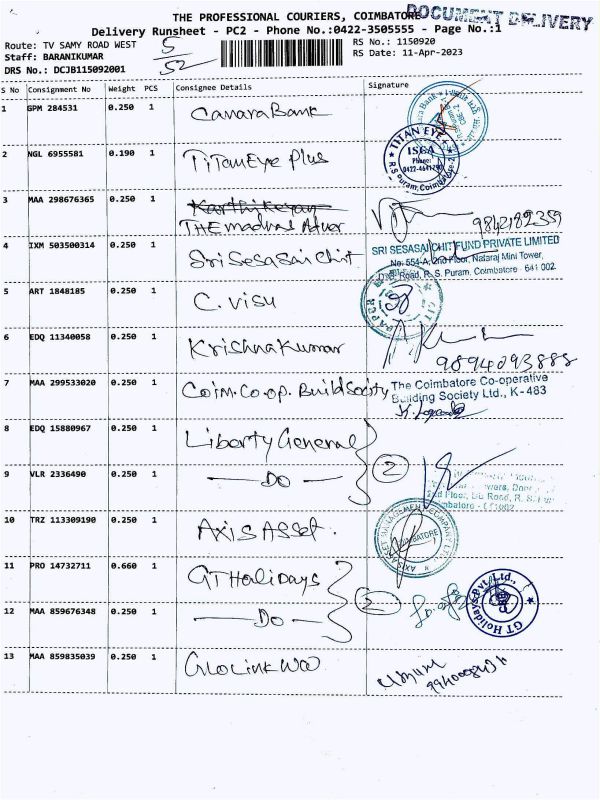 THE PROFESSIONAL COURIERS, COIMBATORE
DOCUMENT DELIVERY
Delivery Runsheet - PC2 - Phone No.:0422-3505555 - Page No.:1
Route: TV SAMY ROAD WEST
5/52
RS No.: 1150920
Staff: BARANIKUMAR
RS Date: 11-Apr-2023
DRS No.: DCJB115092001
S No Consignment No Weight PCS Consignee Details Signature
1 GPM 284531 0.250 1 Canara Bank
2 NGL 6955581 0.190 1 TiTan Eye Plus
TITAN EYE
ISGA
Phone:
R S Puram, Coimbatore-2
3 MAA 298676365 0.250 1 Karthikeyan
THE madras Adver
9842182359
4 IXM 503500314 0.250 1 Sri Sesa Sai Chit
SRI SESASAI CHIT FUND PRIVATE LIMITED
No: 554-A, 2nd Floor, Nataraj Mini Tower,
Road, R. S. Puram, Coimbatore - 641 002.
5 ART 1848185 0.250 1 C. Visu
6 EDQ 11340058 0.250 1 Krishna Kumar
9894093888
7 MAA 299533020 0.250 1 Coim. Co. op. Build Society
The Coimbatore Co-operative
Building Society Ltd., K-483
8 EDQ 15880967 0.250 1 Liberty General
2
9 VLR 2336490 0.250 1 — Do —
2nd Floor, DB Road, R. S.
10 TRZ 113309190 0.250 1 Axis Asset.
AXIS ASSET MANAGEMENT COMPANY LTD.
COIMBATORE
11 PRO 14732711 0.660 1 GT Holidays
2
GT Holidays Pvt. Ltd.,
12 MAA 859676348 0.250 1 — Do —
13 MAA 859835039 0.250 1